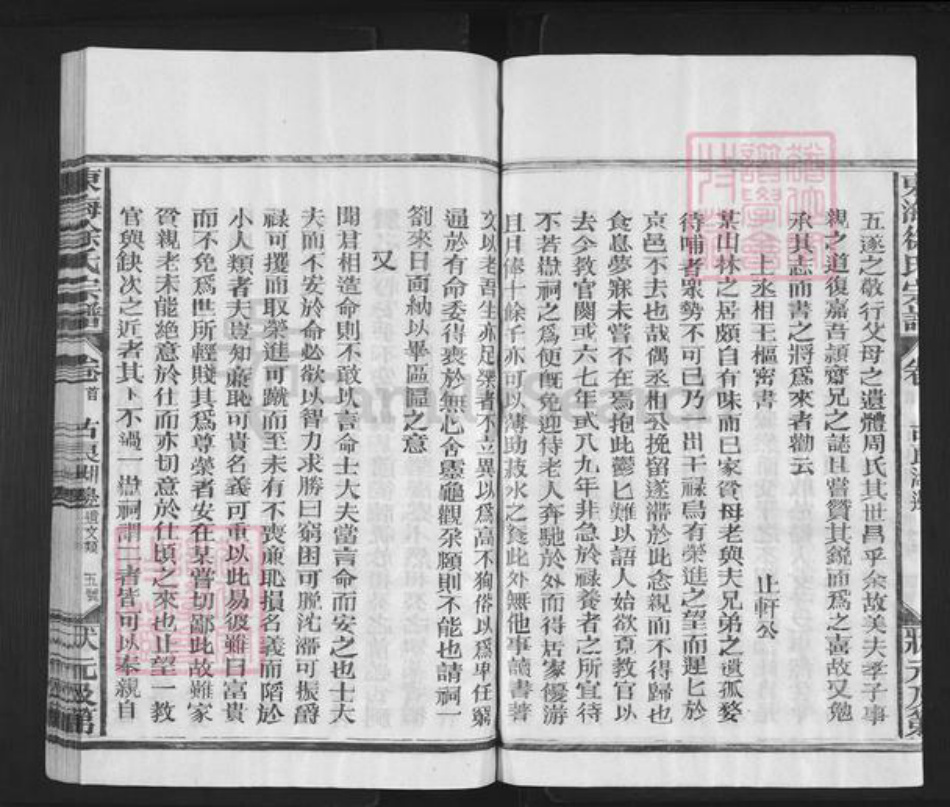 五遂之敬行父母之遺體周氏其世昌乎余故美夫季子事
親之道復嘉吾頤齋兄之誌且嘗贊其銳而爲之喜故又勉
承其志而書之將爲來者勸云
上丞相王樞密書 止軒公
某山林之居頗自有味而已家貧母老與夫兄弟之遺孤嫠
待哺者衆勢不可已乃者出干祿烏有榮進之望而遲匕於
京邑不去也哉偶丞相公挽留遂滯於此念親而不得歸也
食息夢寐未嘗不在焉抱此鬱匕難以語人始欲覔教官以
去今教官闕或六七年或八九年非急於祿養者之所宜待
不若嶽祠之爲便旣免迎侍老人奔馳於外而得居家優游
且日俸十餘千亦可以薄助菽水之養此外無他事讀書著
文以老吾生亦足樂者不立異以爲高不狥俗以爲卑任窮
通於有命委得喪於無心舍靈龜觀朶頤則不能也請祠一
劄來日面納以畢區區之意
又
聞君相造命則不敢以言命士大夫當言命而安之也士大
夫而不安於命必欲以智力求勝曰窮困可脫沈滯可振爵
祿可攫而取榮進可蹴而至未有不喪廉恥損名義而陷於
小人類者夫豈知廉恥可貴名義可重以此易彼雖曰富貴
而不免爲世所輕賤其爲尊榮者安在某嘗切鄙此故雖家
貧親老未能絕意於仕而亦切意於仕頃之來也止望一教
官與鈌次之近者其下不過一嶽祠謂二者皆可以奉親自
東海徐氏宗譜 卷首 古良湖學 遺文類 五號 狀元及第